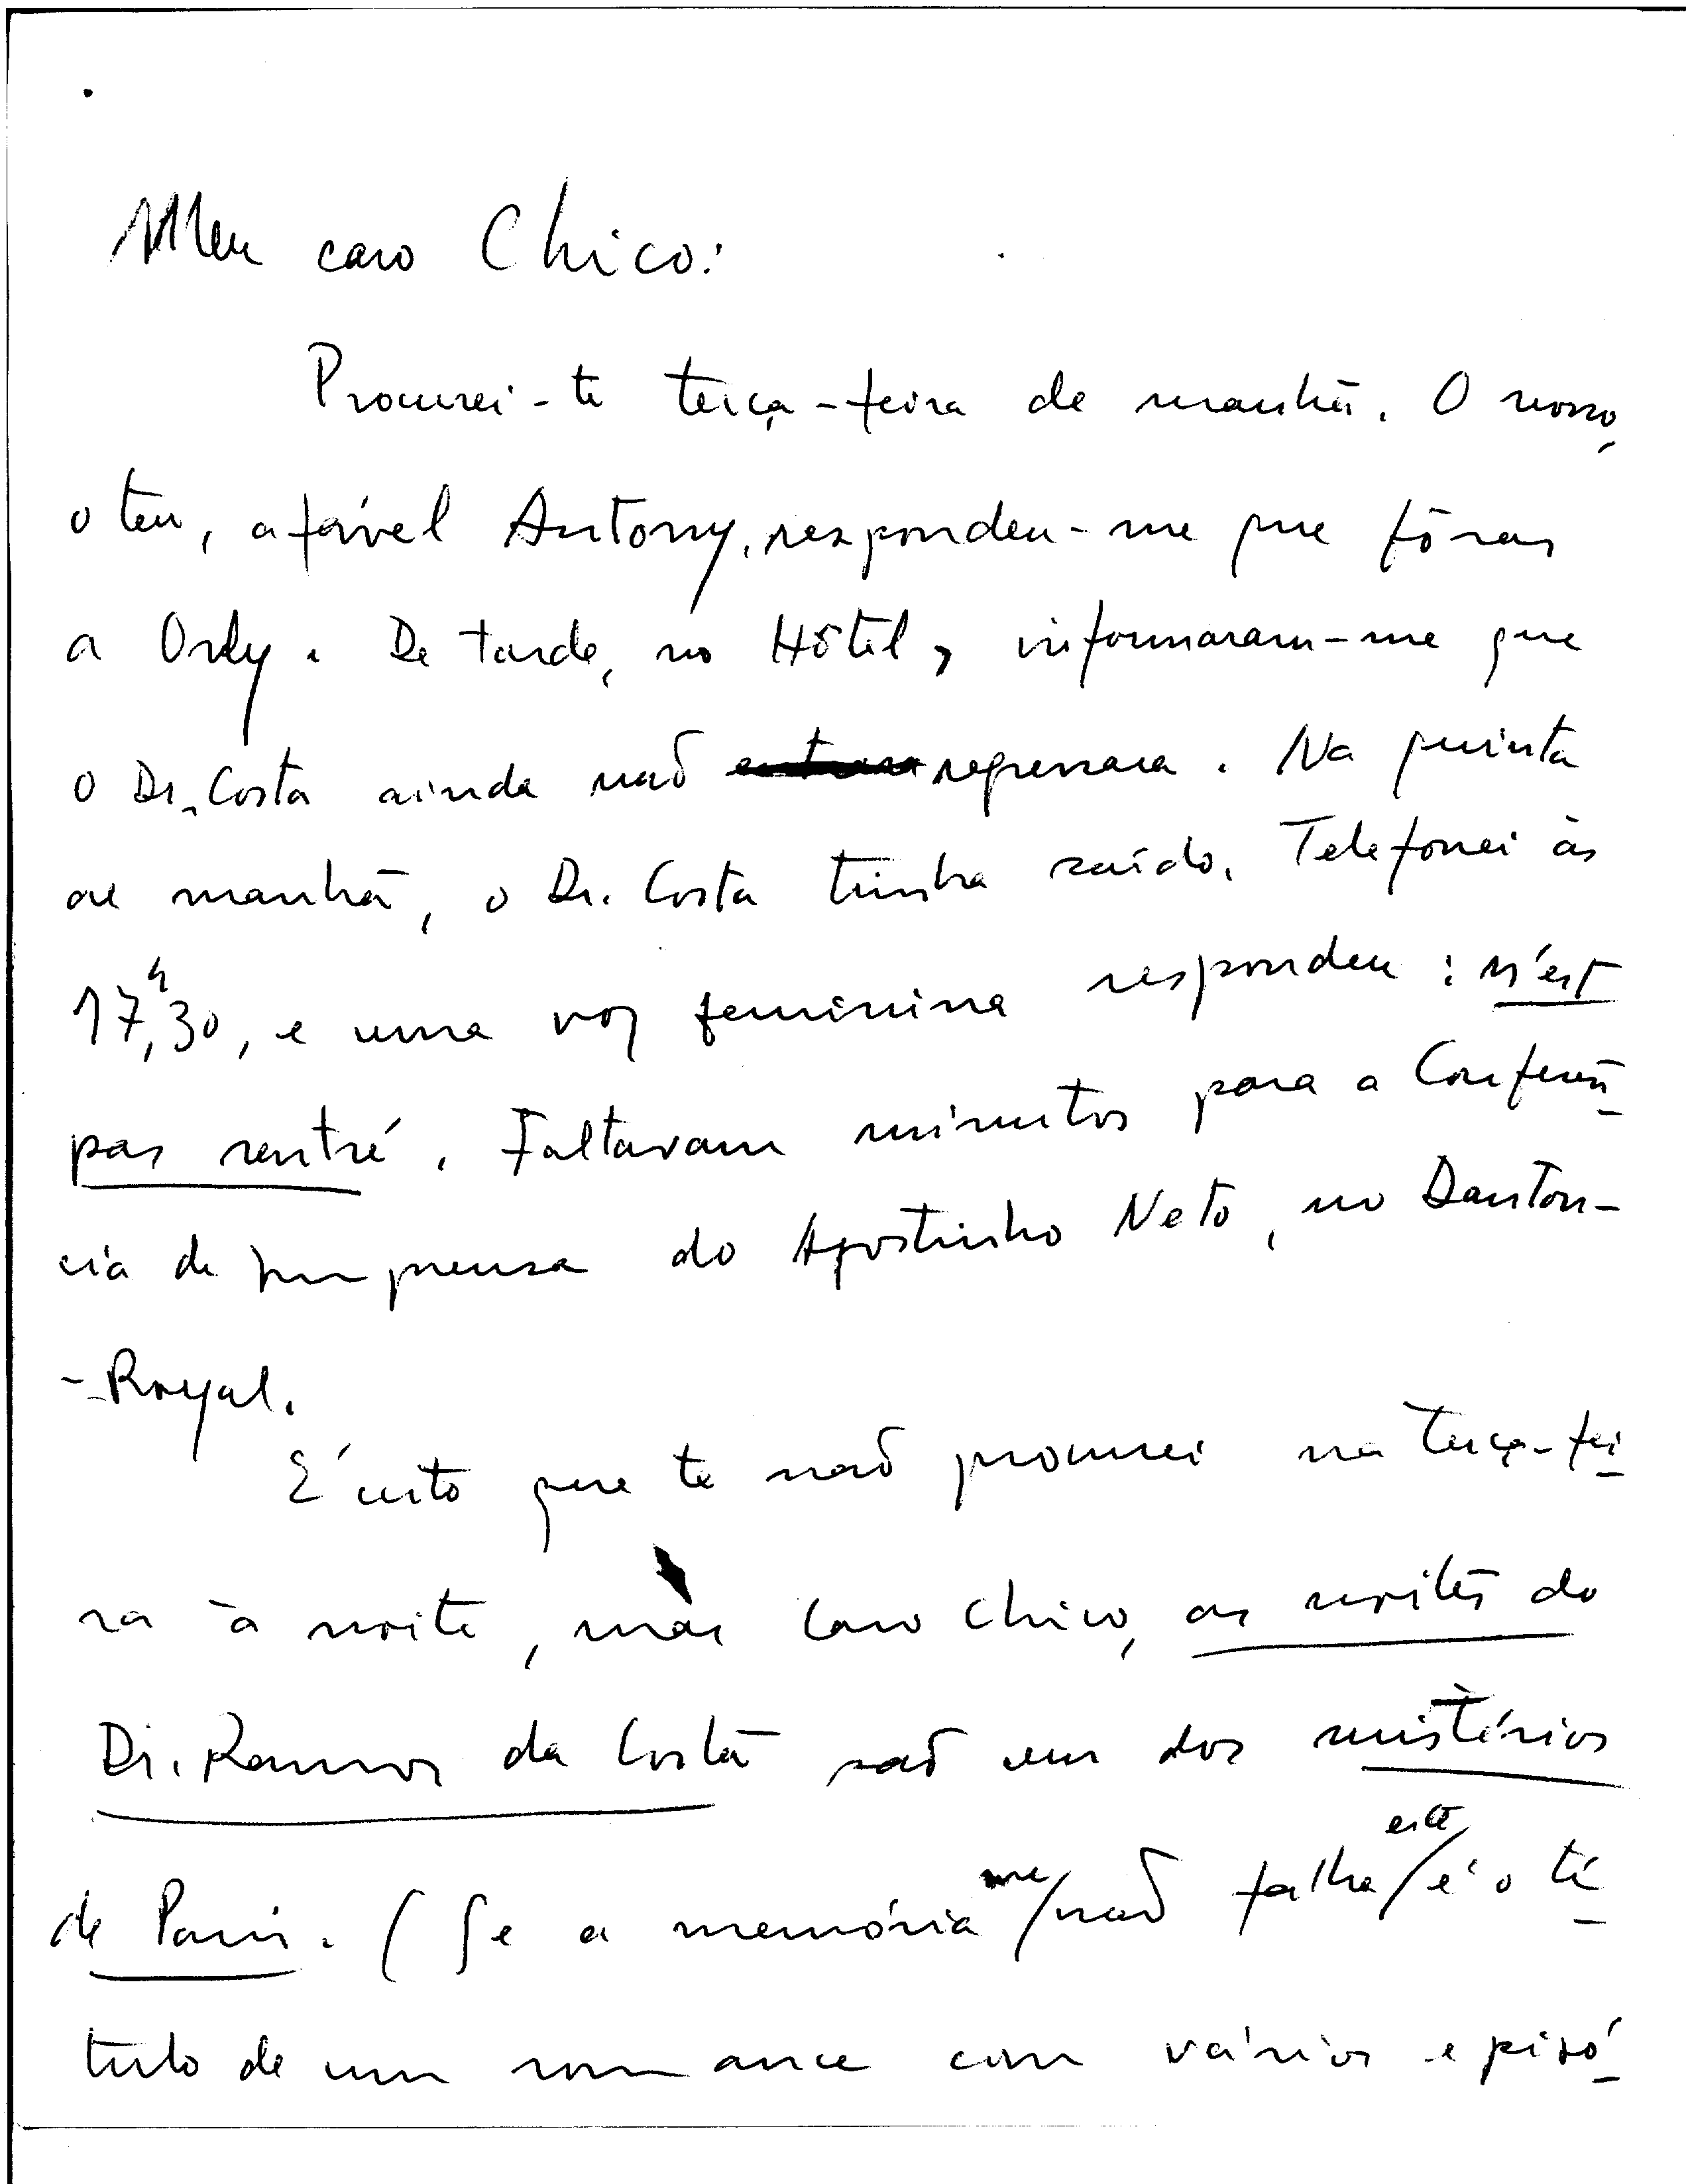 Meu caro Chico:
Procurei-te terça-feira de manhã. O nosso,
o teu, afável Antony, respondeu-me que fôras
a Orly. De tarde, no Hôtel, informaram-me que
o Dr. Costa ainda não regressara. Na quinta
de manhã, o Dr. Costa tinha saído. Telefonei às
17,30h, e uma voz feminina respondeu: n'est
pas rentré. Faltavam minutos para a Conferên
cia de Imprensa do Agostinho Neto, no Danton-
-Royal.
É certo que te não procurei na terça-fei
ra à noite, mas caro Chico, as noites do
Dr. Ramos da Costa são um dos mistérios
de Paris. (Se a memória me não falha este é o tí
tulo de um romance com vários episó